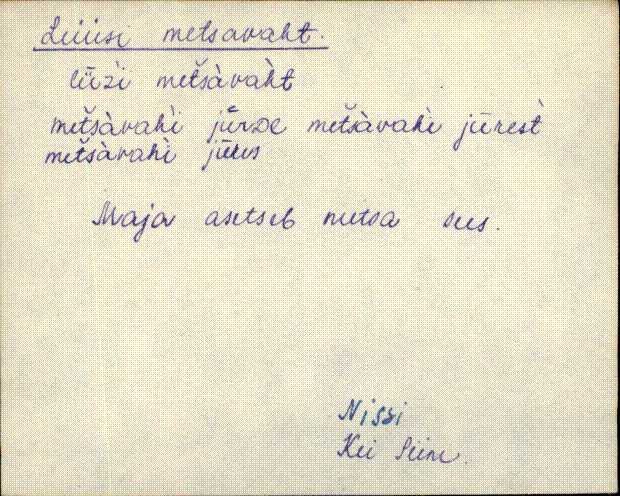 Lüüsi metsavaht.
lüz̀i metšàvaht
metšàvahì jǖrᴅe metšàvahì jǖrest̀
metšàvahì jǖrus
Maja asetseb metsa sees.
Nissi
Kei Seim.